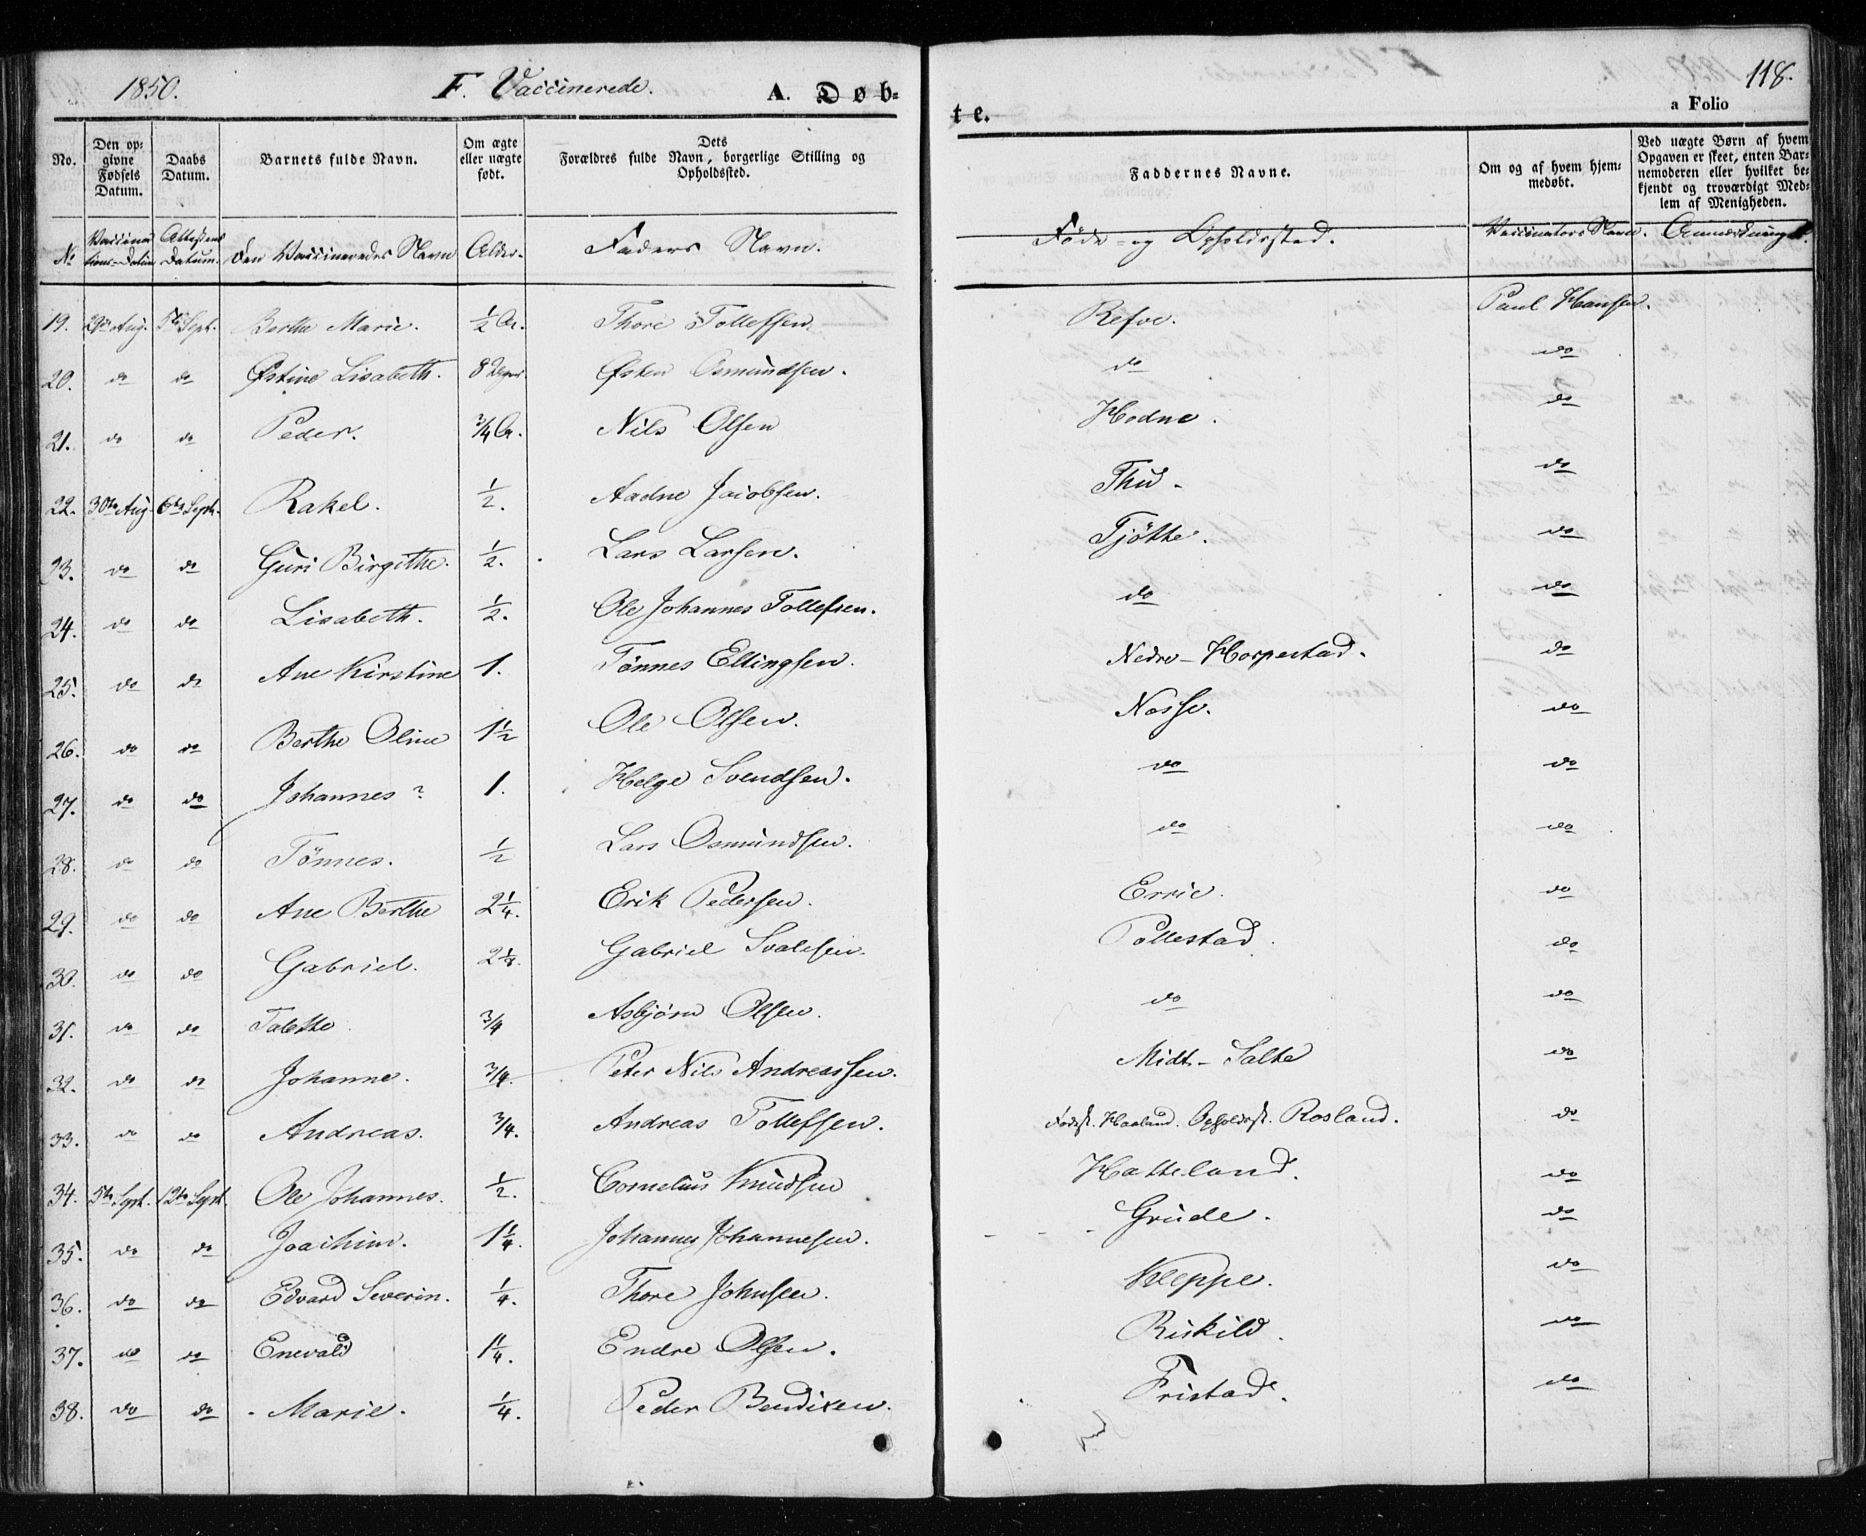 1850. F. Vaccinerede. A. Døb-
te. 118.
a Folio
No. | Den opgivne Fødsels Datum. | Daabs Datum. | Barnets fulde Navn. | Om ægte eller uægte født. | Dets Forældres fulde Navn, borgerlige Stilling og Opholdssted. | Faddernes Navne. | Om og af hvem hjemmedøbt. | Ved uægte Børn af hvem Opgaven er skeet, enten Barnemoderen eller hvilket bekjendt og troværdigt Medlem af Menigheden.
No | Vaccinations-Datum | Attestens Datum. | Den Vaccineredes Navn | Alder. | Faders Navn. | Føde- og Opholdssted. | Vaccinators Navn. | Anmærkninger.
19. | 29de Aug. | 5te Sept. | Berthe Marie. | 1/2 Ar. | Thore Tollefsen | Refve. | Paul Hansen.
20. | do | do | Østine Lisabeth. | 8 | Østen Osmundsen. | do | do
21. | do | do | Peder. | 3/4 Ar. | Nils Olsen | Hodne. | do
22. | 30te Aug. | 6te Sept. | Rakel. | 1/2. | Aadne Jacobsen. | Thu- | do
23. | do | do | Guri Birgithe. | 1/2. | Lars Larsen. | Tjötte. | do
24. | do | do | Lisabeth. | 1/2. | Ole Johannes Tollefsen. | do | do
25. | do | do | Ane Kirstine | 1. | Tönnes Ellingsen. | Nedre-Horpestad. | do
26. | do | do | Berthe Oline | 1 1/2 | Ole Olsen. | Næsse. | do
27. | do | do | Johannes? | 1. | Helge Svendsen. | do | do
28. | do | do | Tönnes. | 1/2 | Lars Osmundsen. | do | do
29. | do | do | Ane Berthe | 2 1/4. | Erik Pedersen. | Errie. | do
30. | do | do | Gabriel. | 2 1/2. | Gabriel Svalesen. | Pollestad. | do
31. | do | do | Talette | 3/4 | Asbjörn Olsen. | do | do
32. | do | do | Johanne. | 3/4. | Peter Nils Andreassen. | Midt-Salte | do
33. | do | do | Andreas. | 3/4. | Andreas Tollefsen. | Fødest. Haaland. Opholdsst. Rosland. | do
34. | 5te Sept. | 12te Sept. | Ole Johannes. | 1/2. | Cornelius Knudsen | Hatteland. | do
35. | do | do | Joachim. | 1 1/4. | Johannes Johannesen. | Grude. | do
36. | do | do | Edvard Severin. | 1/4. | Thore Johnsen. | Kleppe. | do
37. | do | do | Enevald | 1 1/4. | Endre Olsen. | Riskild. | do
38. | do | do | Marie. | 1/4. | Peder Bendixen. | Fristad. | do